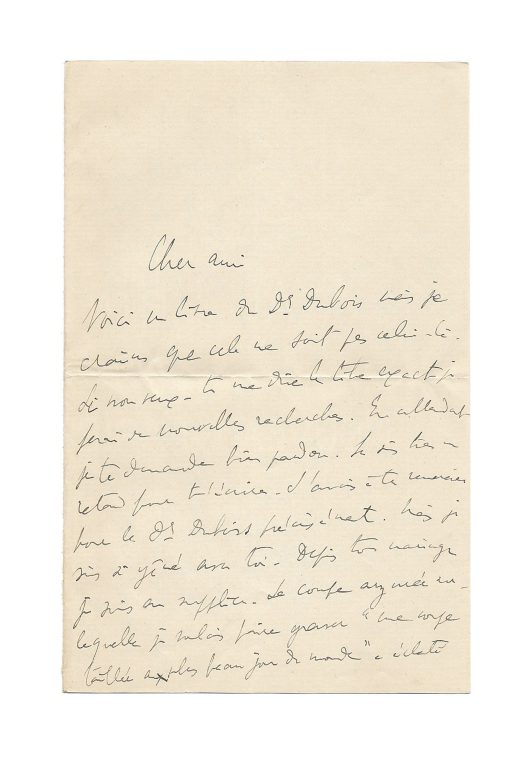 Cher ami
Voici un titre du Dr Dubois mais je
crains que cela ne soit pas celui-là.
Si non veux-tu me dire le titre exact je
ferai de nouvelles recherches. En attendant
je te demande bien pardon. Je suis très en
retard pour t'écrire. J'avais à te remercier
pour le Dr Dubois précisément. Mais je
suis si gêné avec toi. Depuis ton mariage
je suis au supplice. La coupe argentée sur
laquelle je voulais faire graver "une coupe
taillée au plus beau jour du monde" a éclaté